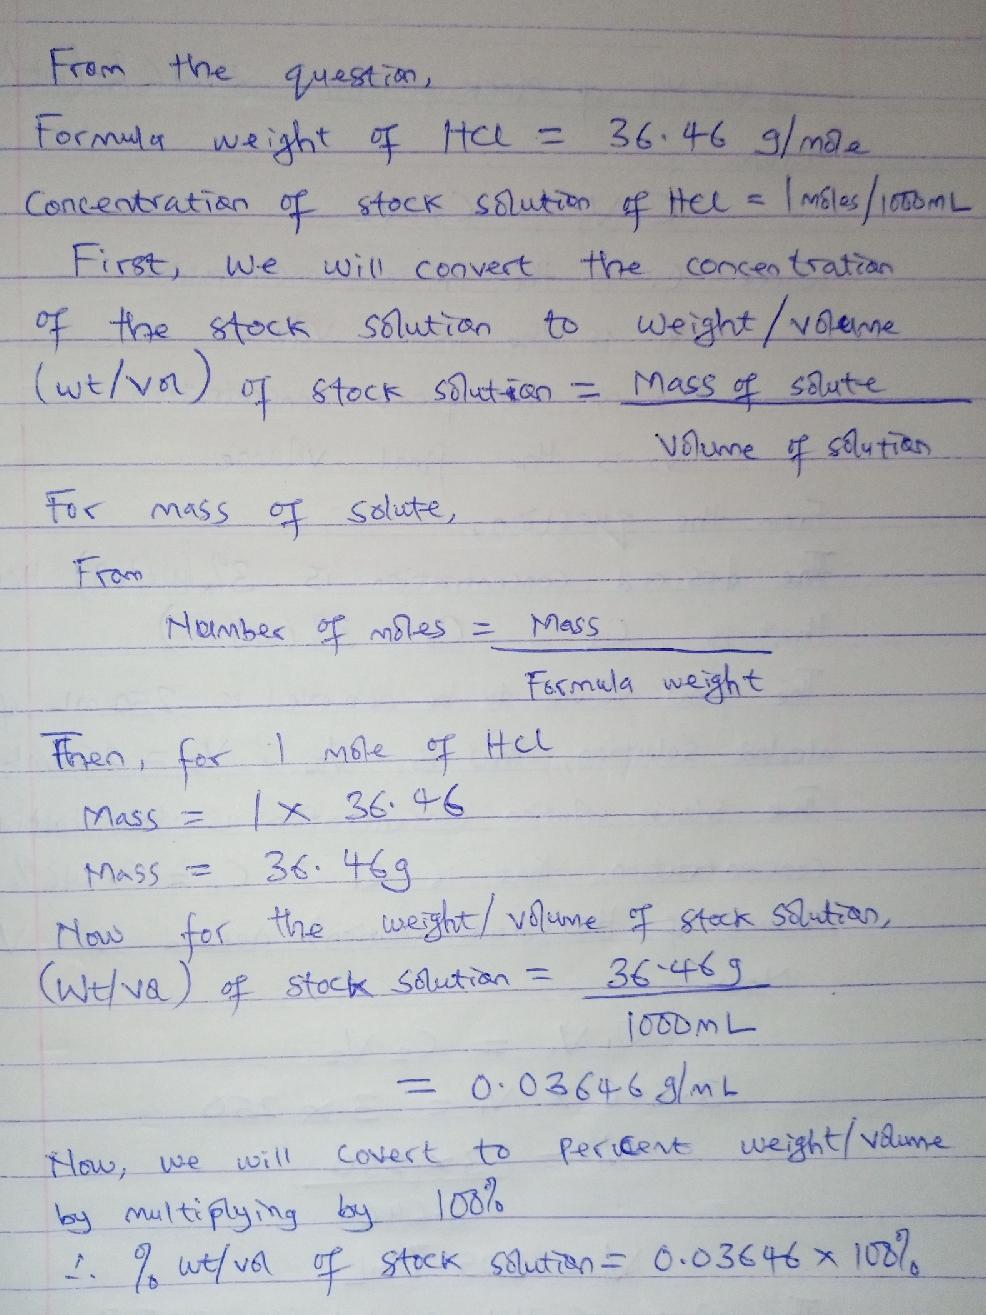 From the question,
Formula weight of HCl = 36.46 g/mole
Concentration of stock solution of HCl = 1 moles/1000mL
First, we will convert the concentration
of the stock solution to weight/volume
(wt/vol) of stock solution = Mass of solute
Volume of solution
For mass of solute,
From
Number of moles = Mass
Formula weight
Then, for 1 mole of HCl
Mass = 1 x 36.46
Mass = 36.46g
Now for the weight/volume of stock solution,
(Wt/vol) of stock solution = 36.46g
1000mL
= 0.03646 g/mL
Now, we will covert to percent weight/volume
by multiplying by 100%
∴ % wt/vol of stock solution = 0.03646 x 100%